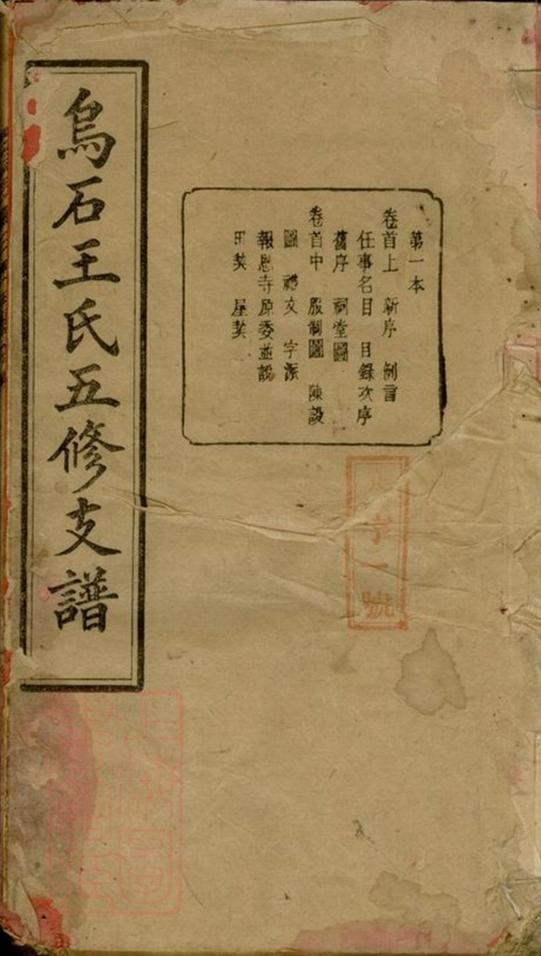 烏石王氏五修支譜
第一本
卷首上 新序 例言
任事名目 目錄次序
舊序 祠堂圖
卷首中 服制圖 陳設
圖 禮文 字派
報恩寺原委並說
田契 屋契
字一號